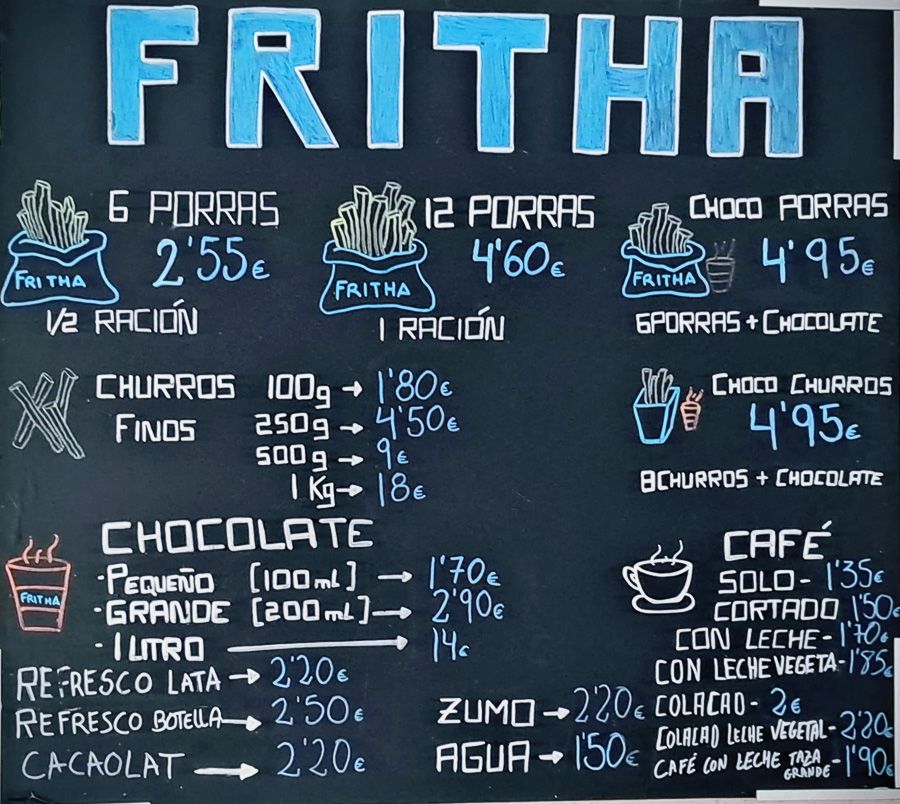 FRITHA
6 PORRAS
2'55€
FRITHA
1/2 RACIÓN
12 PORRAS
4'60€
FRITHA
1 RACIÓN
CHOCO PORRAS
4'95€
FRITHA
6PORRAS + CHOCOLATE
CHURROS 100g → 1'80€
FINOS 250g → 4'50€
500g → 9€
1 Kg → 18€
CHOCO CHURROS
4'95€
8CHURROS + CHOCOLATE
CHOCOLATE
FRITHA
·PEQUEÑO [100mL] → 1'70€
·GRANDE [200mL] → 2'90€
·1 LITRO → 14€
REFRESCO LATA → 2'20€
REFRESCO BOTELLA → 2'50€
CACAOLAT → 2'20€
ZUMO → 2'20€
AGUA → 1'50€
CAFÉ
SOLO - 1'35€
CORTADO 1'50€
CON LECHE - 1'70€
CON LECHE VEGETA - 1'85€
COLACAO - 2€
COLACAO LECHE VEGETAL - 2'20€
CAFÉ CON LECHE TAZA GRANDE - 1'90€